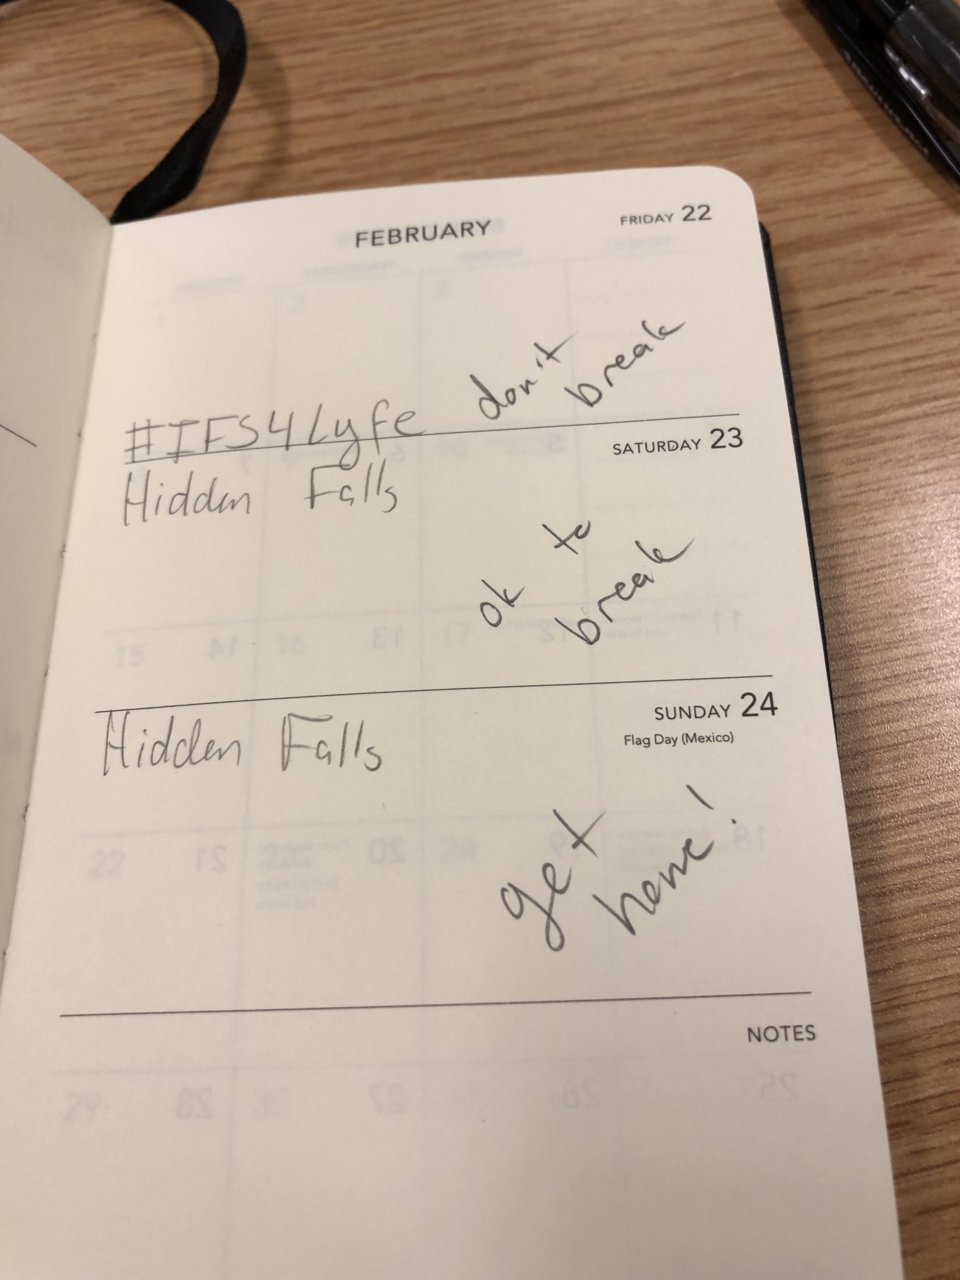 FEBRUARY
FRIDAY 22
don't
break
#IFS4Lyfe
SATURDAY 23
Hidden Falls
ok to
break
SUNDAY 24
Flag Day (Mexico)
Hidden Falls
get
home!
NOTES